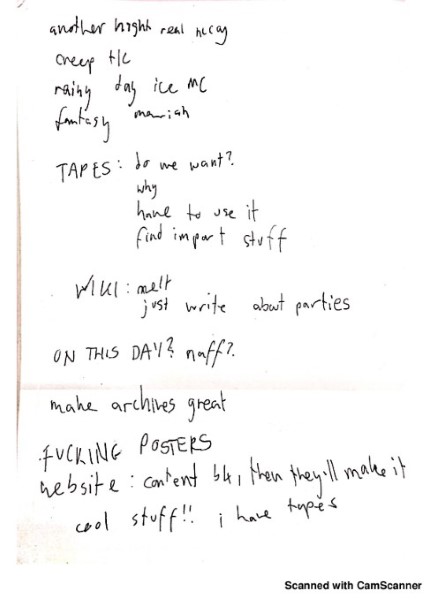 another night real mccoy
creep tlc
rainy day ice MC
fantasy mariah
TAPES: do we want?
why
have to use it
find import stuff
WIKI: melt
just write about parties
ON THIS DAY? naff?
make archives great
FUCKING POSTERS
website: content b4, then they'll make it
cool stuff!! i have tapes
Scanned with CamScanner